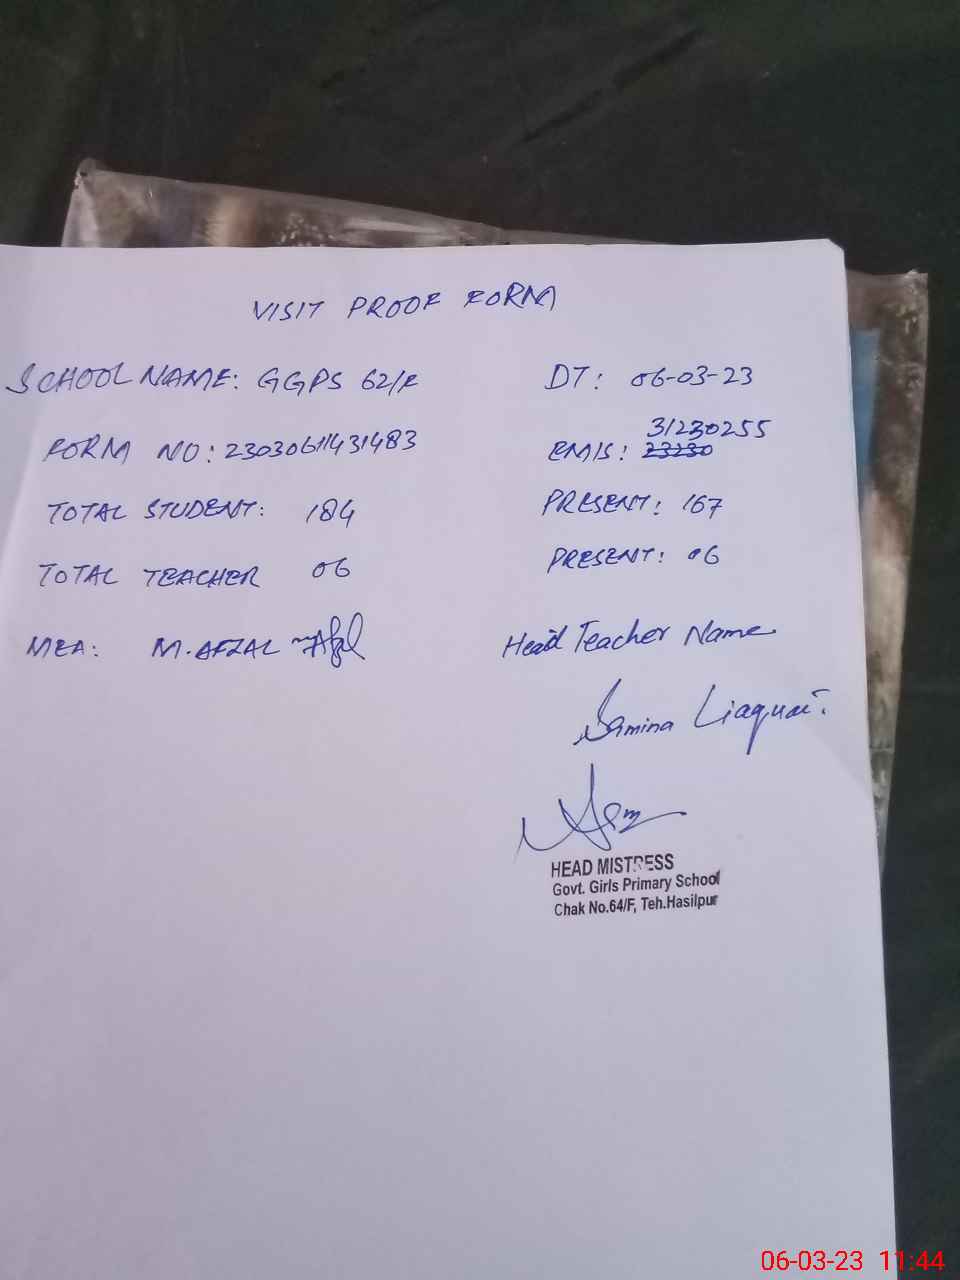 VISIT PROOF FORM
SCHOOL NAME: GGPS 62/F DT: 06-03-23
FORM NO: 23030611431483 EMIS: 23230 31230255
TOTAL STUDENT: 184 PRESENT: 167
TOTAL TEACHER 06 PRESENT: 06
MEA: M. AFZAL Afzl Head Teacher Name
Samina Liaquat.
HEAD MISTRESS
Govt. Girls Primary School
Chak No.64/F, Teh.Hasilpur
06-03-23 11:44